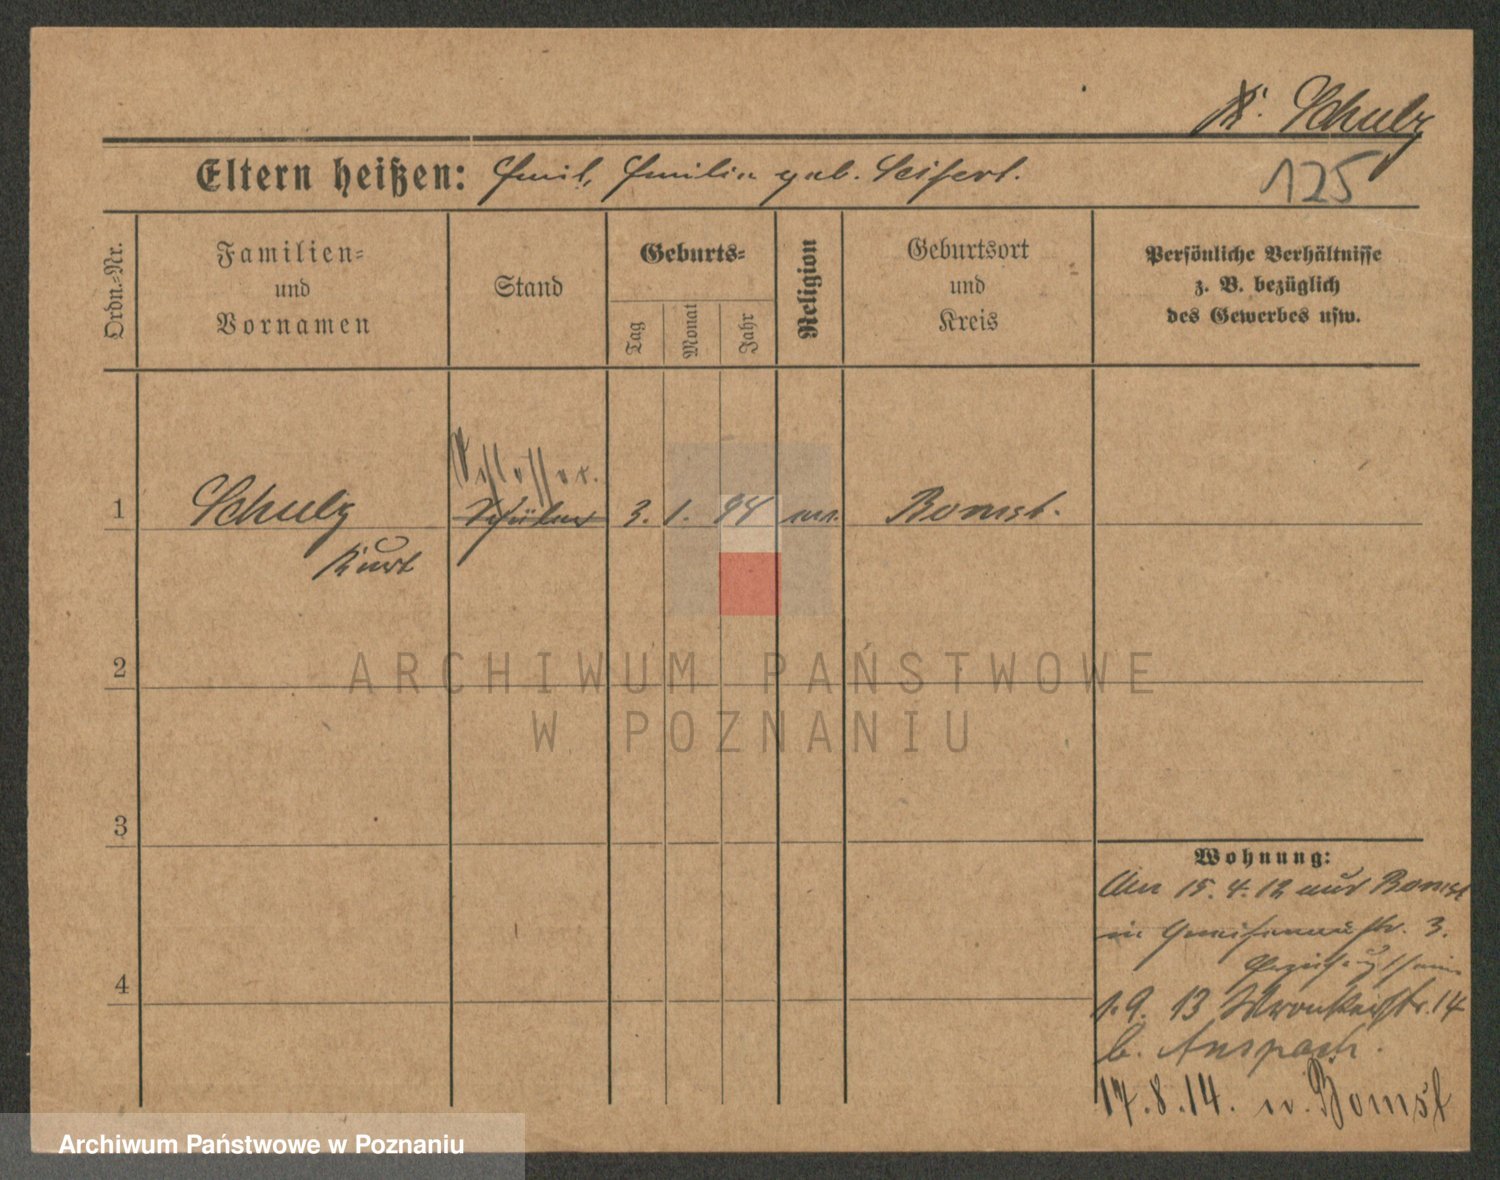 K. Schulz
Eltern heißen: Emil, Emilie geb. Seifert.
125
Ordn.-Nr.
Familien-
und
Vornamen
Stand
Geburts-
Tag
Monat
Jahr
Religion
Geburtsort
und
Kreis
Persönliche Verhältnisse
z. B. bezüglich
des Gewerbes usw.
Schlosser.
1 Schulz Schüler 3. 1. 94 ev. Bomst.
Kurt
2
3
4
Wohnung:
Am 15.4.12 aus Bomst
in Gneisenaustr. 3.
1.9. 13 Wronkerstr. 14
b. Anspach.
17.8.14. n. Bomst
ARCHIWUM PAŃSTWOWE
W POZNANIU
Archiwum Państwowe w Poznaniu